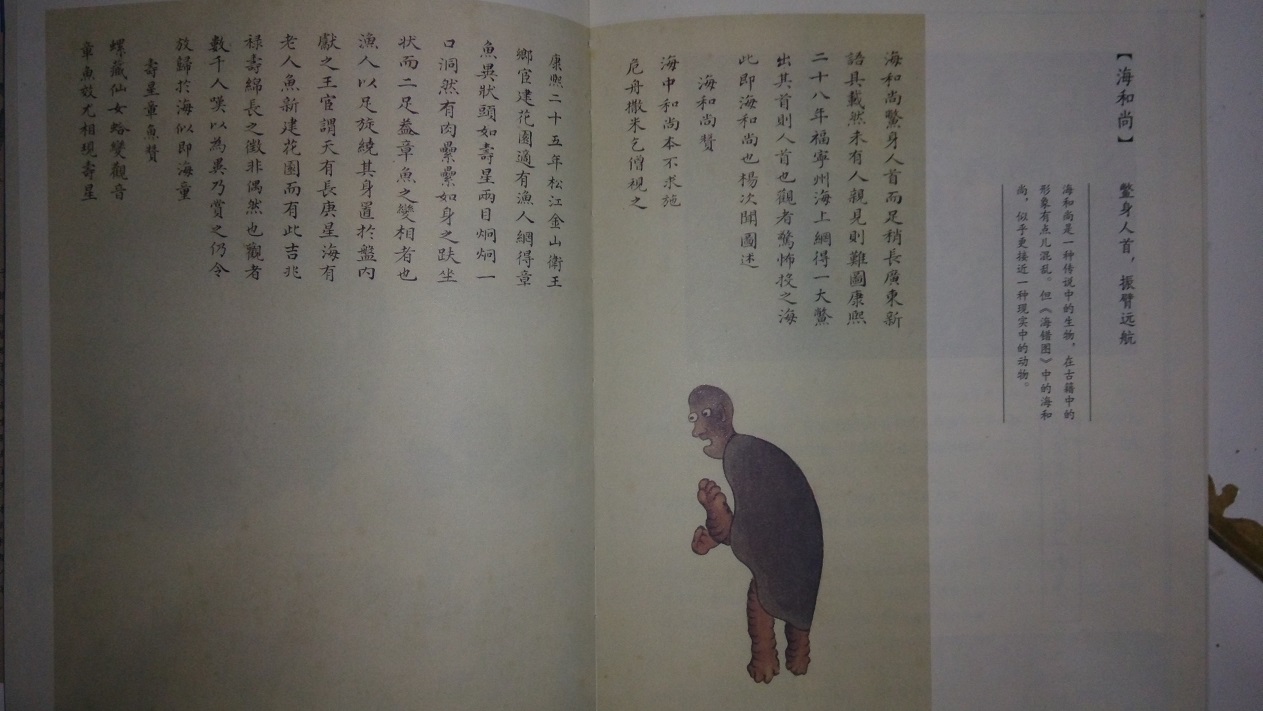 【海和尚】 鳖身人首，振臂远航
海和尚是一种传说中的生物，在古籍中的
形象有点儿混乱。但《海错图》中的海和
尚，似乎更接近一种现实中的动物。
海和尚鱉身人首而足稍長廣東新
語具載然未有人親見則難圖康熙
二十八年福寧州海上網得一大鱉
出其首則人首也觀者驚怖投之海
此即海和尚也楊次聞圖述
海和尚贊
海中和尚本不求施
危舟撒米乞僧視之
康熙二十五年松江金山衛王
鄉宦建花園適有漁人網得章
魚異狀頭如壽星兩目炯炯一
口洞然有肉纍纍如身之趺坐
状而二足蓋章魚之變相者也
漁人以足旋繞其身置於盤内
獻之王宦謂天有長庚星海有
老人魚新建花園而有此吉兆
祿壽綿長之徵非偶然也觀者
數千人嘆以為異乃賞之仍令
放歸於海似即海童
壽星章魚贊
螺藏仙女蛤變觀音
章魚效尤相現壽星